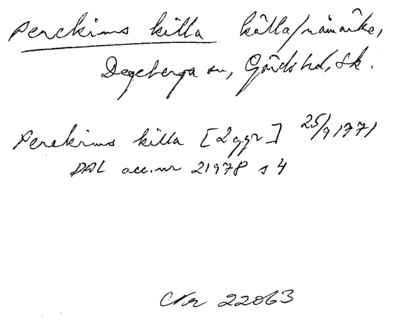 Perekims killa källa/råmärke,
Degeberga sn, Gärds hd, Sk.
Perekims killa [2 ggr] 25/9 1771
DAL acc.nr 21978 s 4
CNr 22063